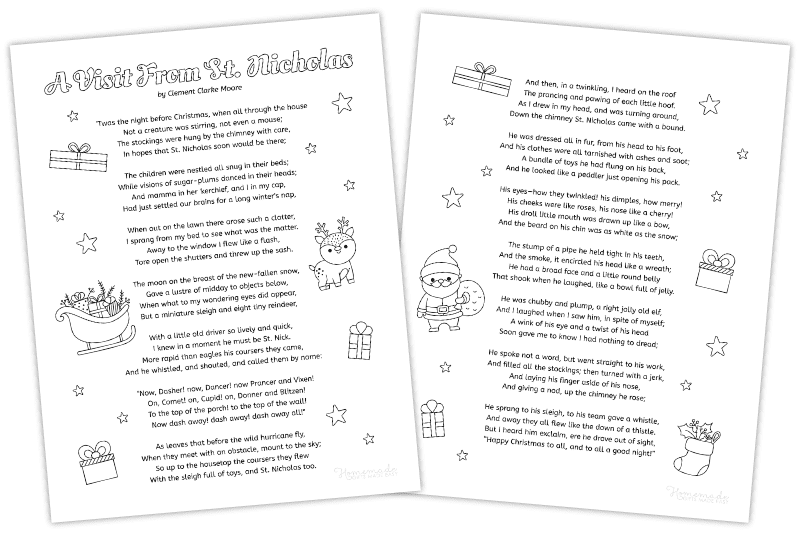 A Visit From St. Nicholas
by Clement Clarke Moore
'Twas the night before Christmas, when all through the house
Not a creature was stirring, not even a mouse;
The stockings were hung by the chimney with care,
In hopes that St. Nicholas soon would be there;
The children were nestled all snug in their beds;
While visions of sugar-plums danced in their heads;
And mamma in her kerchief, and I in my cap,
Had just settled our brains for a long winter's nap,
When out on the lawn there arose such a clatter,
I sprang from my bed to see what was the matter.
Away to the window I flew like a flash,
Tore open the shutters and threw up the sash.
The moon on the breast of the new-fallen snow,
Gave a lustre of midday to objects below,
When what to my wondering eyes did appear,
But a miniature sleigh and eight tiny reindeer,
With a little old driver so lively and quick,
I knew in a moment he must be St. Nick.
More rapid than eagles his coursers they came,
And he whistled, and shouted, and called them by name:
"Now, Dasher! now, Dancer! now Prancer and Vixen!
On, Comet! on, Cupid! on, Donner and Blitzen!
To the top of the porch! to the top of the wall!
Now dash away! dash away! dash away all!"
As leaves that before the wild hurricane fly,
When they meet with an obstacle, mount to the sky;
So up to the housetop the coursers they flew
With the sleigh full of toys, and St. Nicholas too.
Homemade
And then, in a twinkling, I heard on the roof
The prancing and pawing of each little hoof.
As I drew in my head, and was turning around,
Down the chimney St. Nicholas came with a bound.
He was dressed all in fur, from his head to his foot,
And his clothes were all tarnished with ashes and soot;
A bundle of toys he had flung on his back,
And he looked like a peddler just opening his pack.
His eyes—how they twinkled! his dimples, how merry!
His cheeks were like roses, his nose like a cherry!
His droll little mouth was drawn up like a bow,
And the beard on his chin was as white as the snow;
The stump of a pipe he held tight in his teeth,
And the smoke, it encircled his head like a wreath;
He had a broad face and a little round belly
That shook when he laughed, like a bowl full of jelly.
He was chubby and plump, a right jolly old elf,
And I laughed when I saw him, in spite of myself;
A wink of his eye and a twist of his head
Soon gave me to know I had nothing to dread;
He spoke not a word, but went straight to his work,
And filled all the stockings; then turned with a jerk,
And laying his finger aside of his nose,
And giving a nod, up the chimney he rose;
He sprang to his sleigh, to his team gave a whistle,
And away they all flew like the down of a thistle.
But I heard him exclaim, ere he drove out of sight,
"Happy Christmas to all, and to all a good night!"
Homemade